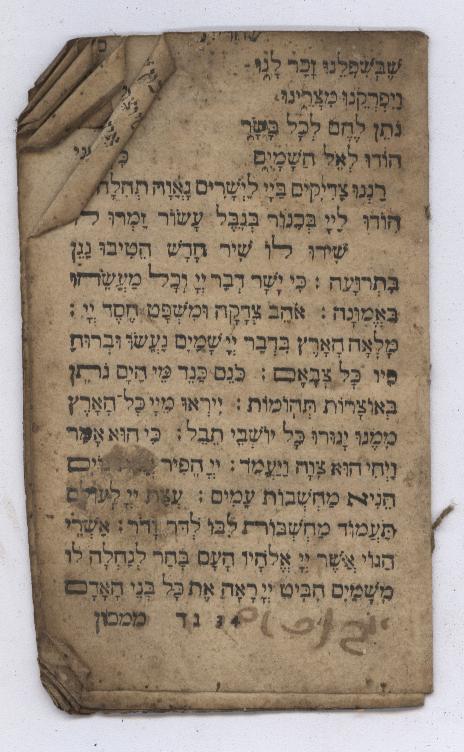 שחרית
שֶׁבְּשִׁפְלֵנוּ זָכַר לָנוּ
וַיִּפְרְקֵנוּ מִצָּרֵינוּ
נֹתֵן לֶחֶם לְכָל בָּשָׂר
הוֹדוּ לְאֵל הַשָּׁמָיִם
רַנְּנוּ צַדִּיקִים בַּיְיָ לַיְשָׁרִים נָאוָה תְהִלָּה
הוֹדוּ לַיְיָ בְּכִנּוֹר בְּנֵבֶל עָשׂוֹר זַמְּרוּ לוֹ
שִׁירוּ לוֹ שִׁיר חָדָשׁ הֵטִיבוּ נַגֵּן
בִּתְרוּעָה : כִּי יָשָׁר דְּבַר יְיָ וְכָל מַעֲשֵׂהוּ
בֶּאֱמוּנָה : אֹהֵב צְדָקָה וּמִשְׁפָּט חֶסֶד יְיָ :
מָלְאָה הָאָרֶץ בִּדְבַר יְיָ שָׁמַיִם נַעֲשׂוּ וּבְרוּחַ
פִּיו כָּל צְבָאָם : כֹּנֵס כַּנֵּד מֵי הַיָּם נֹתֵן
בְּאוֹצָרוֹת תְּהוֹמוֹת : יִירְאוּ מֵיְיָ כָל הָאָרֶץ
מִמֶּנּוּ יָגוּרוּ כָּל יוֹשְׁבֵי תֵבֵל : כִּי הוּא אָמַר
וַיְהִי הוּא צִוָּה וַיַּעֲמֹד : יְיָ הֵפִיר
הֵנִיא מַחְשְׁבוֹת עַמִּים : עֲצַת יְיָ לְעוֹלָם
תַּעֲמוֹד מַחְשְׁבוֹת לִבּוֹ לְדֹר וָדֹר : אַשְׁרֵי
הַגּוֹי אֲשֶׁר יְיָ אֱלֹהָיו הָעָם בָּחַר לְנַחֲלָה לוֹ
מִשָּׁמַיִם הִבִּיט יְיָ רָאָה אֶת כָּל בְּנֵי הָאָדָם
34 נד ממכון